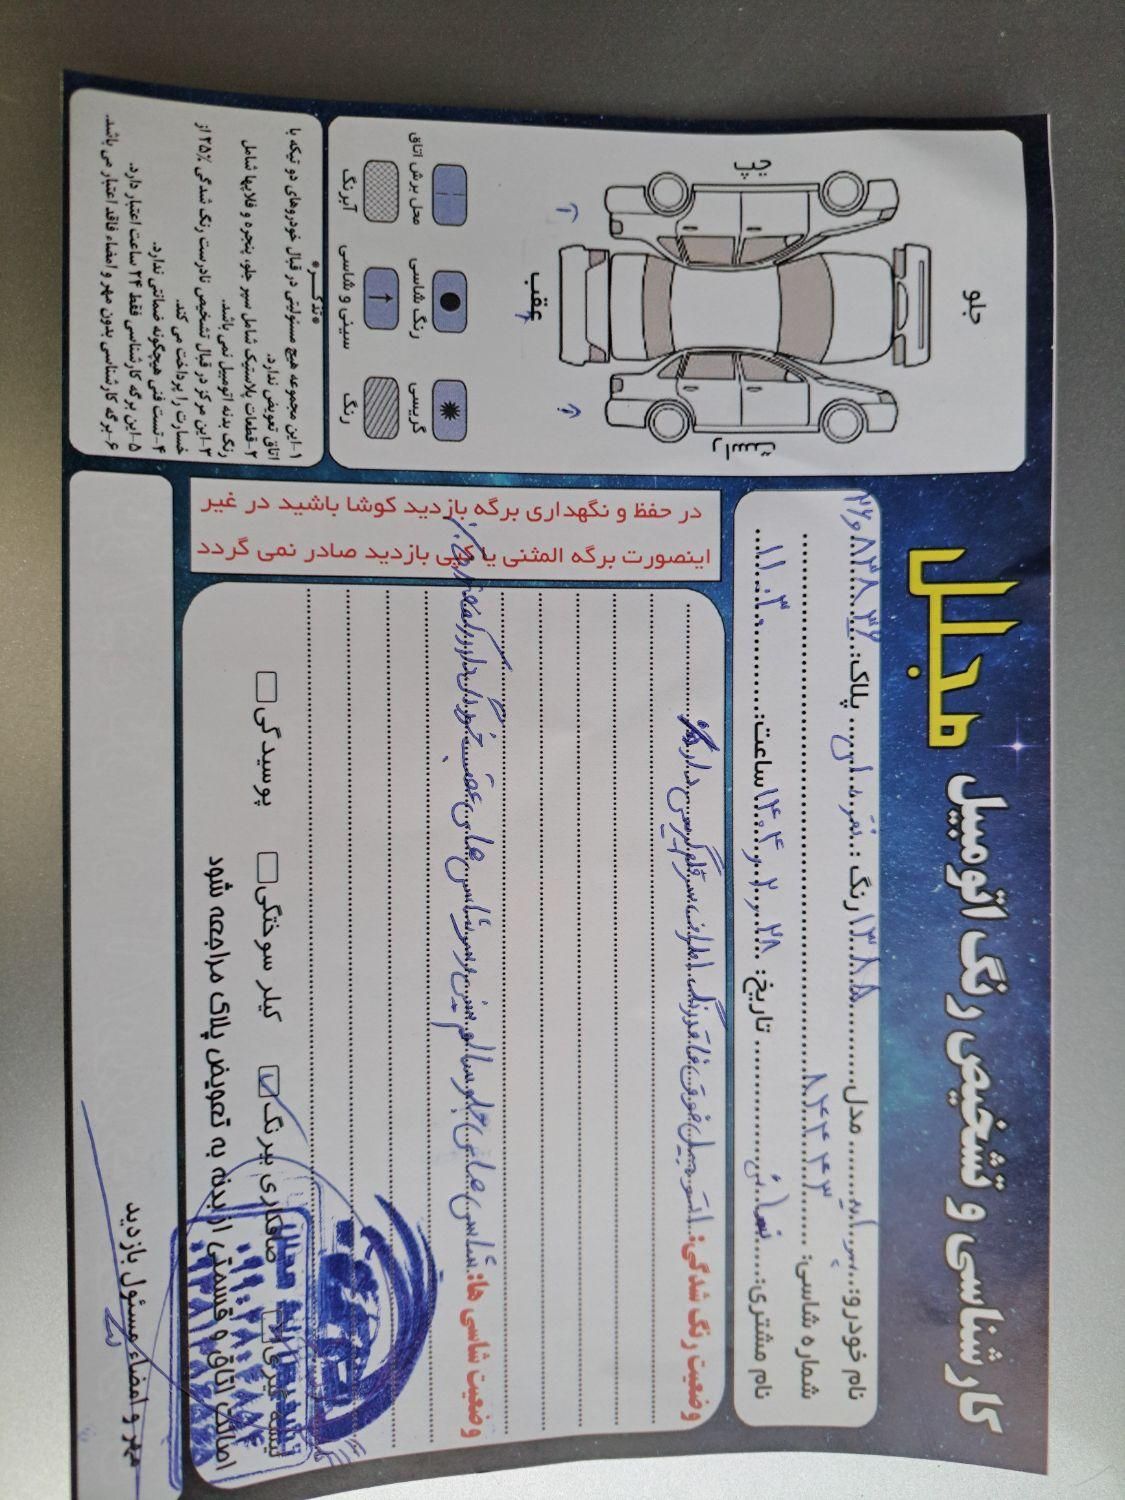 کارشناسی و تشخیص رنگ اتومبیل مجلل
نام خودرو: ساینا مدل ۱۳۸۸ رنگ: نقره‌ای پلاک:
شماره شاسی: ۸۴۴۴۳
نام مشتری: تاریخ: ۱۴۰۴،۲،۲۸ ساعت: ۱۱:۳۰
وضعیت رنگ شدگی: اتومبیل فوق فاقد رنگ دارد
وضعیت شاسی ها: شاسی های جلو سالم شاسی های عقب خوردگی دارد
لیسه گیری
صافکاری بیرنگ
کیلر سوختگی
پوسیدگی
اصالت اتاق و قسمتی از بدنه به تعویض پلاک مراجعه شود
مهر و امضاء مسئول بازدید
در حفظ و نگهداری برگه بازدید کوشا باشید در غیر
اینصورت برگه المثنی یا کپی بازدید صادر نمی گردد
جلو
چپ
راست
عقب
محل برش اتاق
رنگ شاسی
گریسی
آبرنگ
سینی و شاسی
رنگ
*تذکر*
۱-این مجموعه هیچ مسئولیتی در قبال خودروهای دو تیکه با
اتاق تعویض ندارد.
۲-قطعات پلاستیک شامل سپر جلو، پنجره و فلاپها شامل
رنگ بدنه اتومبیل نمی باشد.
۳-این مرکز در قبال تشخیص نادرست رنگ شدگی ۲۵٪ از
خسارت را پرداخت می کند.
۴-تست فنی هیچگونه ضمانتی ندارد.
۵-این برگه کارشناسی فقط ۲۴ ساعت اعتبار دارد.
۶-برگه کارشناسی بدون مهر و امضاء فاقد اعتبار می باشد.